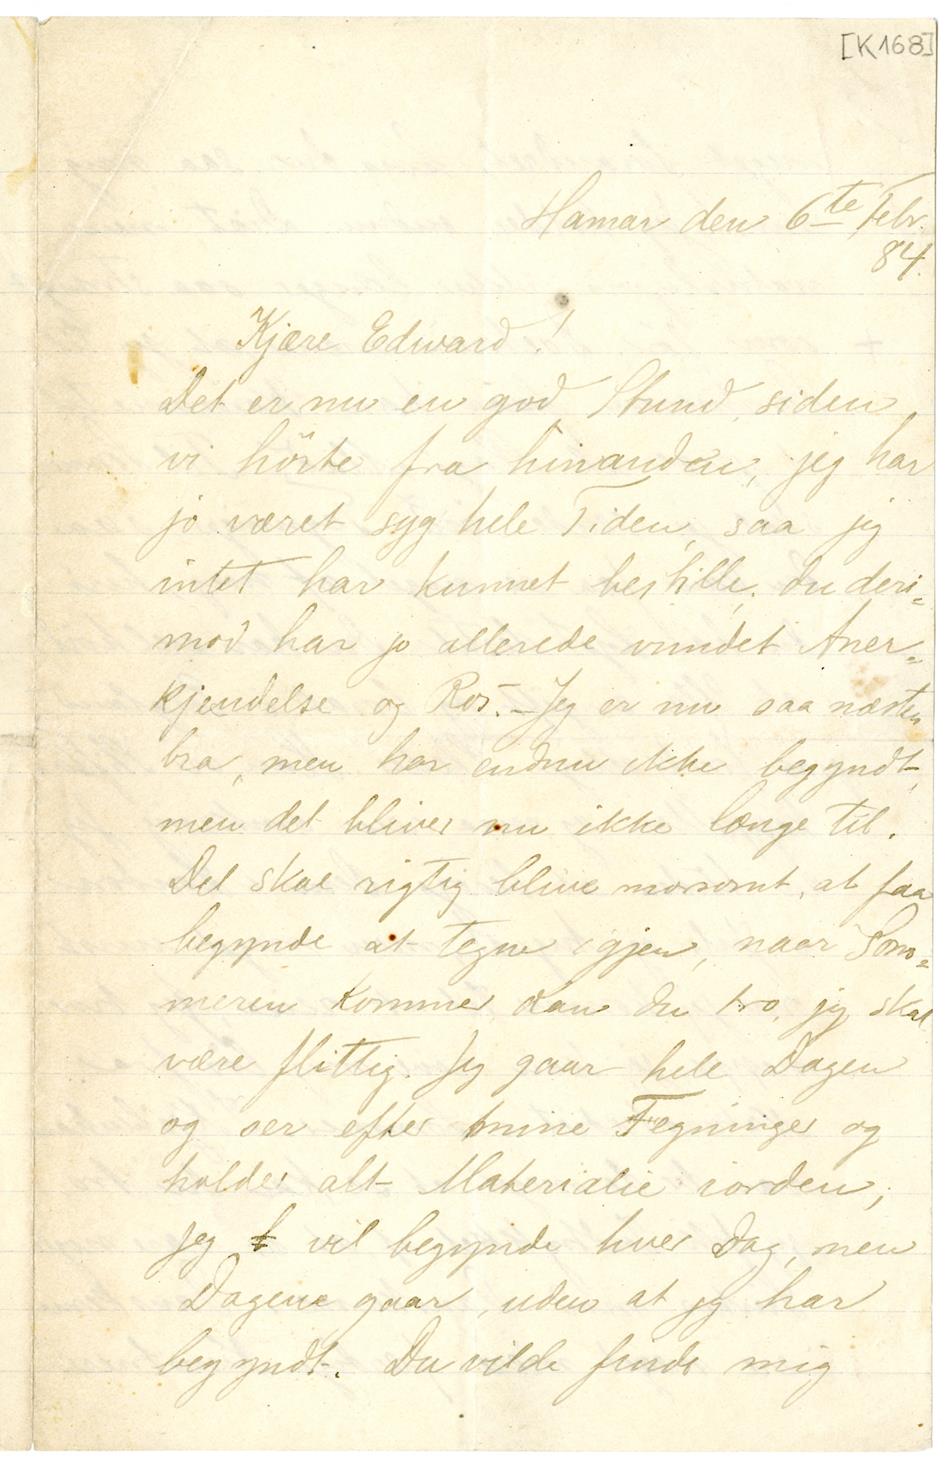 [K168]
Hamar den 6te Febr.
84.
Kjære Edward!
Det er nu en god Stund, siden
vi hörte fra hinanden, jeg har
jo været syg hele Tiden, saa jeg
intet har kunnet bestille. Du deri=
mod har jo allerede vundet Aner=
kjendelse og Ros. – Jeg er nu saa næsten
bra, men har endnu ikke begyndt,
men det bliver nu ikke længe til.
Det skal rigtig blive morsomt, at faa
begynde at tegne igjen, naar Som=
meren kommer kan du tro, jeg skal
være flittig. Jeg gaar hele Dagen
og ser efter mine Tegninger og
holder alt Materialie iorden;
jeg vil begynde hver Dag, men
Dagene gaar, uden at jeg har
begyndt. Du vilde finde mig